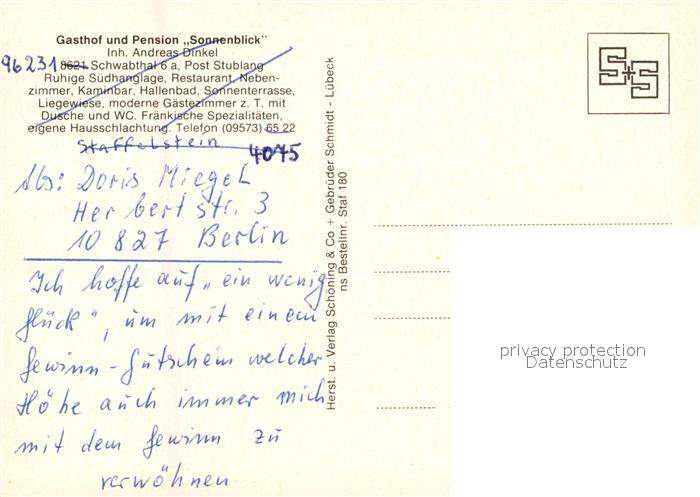 Gasthof und Pension „Sonnenblick"
Inh. Andreas Dinkel
96231 8621 Schwabthal 6 a, Post Stublang
Ruhige Südhanglage, Restaurant, Neben-
zimmer, Kaminbar, Hallenbad, Sonnenterrasse,
Liegewiese, moderne Gästezimmer z. T. mit
Dusche und WC. Fränkische Spezialitäten,
eigene Hausschlachtung. Telefon (09573) 65 22
Staffelstein
4075
Abs: Doris Miegel
Herbertstr. 3
10827 Berlin
Ich hoffe auf „ein wenig
Glück", um mit einem
Gewinn-Gutschein welcher
Höhe auch immer mich
mit dem Gewinn zu
verwöhnen
Herst. u. Verlag Schöning & Co + Gebrüder Schmidt - Lübeck
ns Bestellnr. Staf 180
S+S
privacy protection
Datenschutz